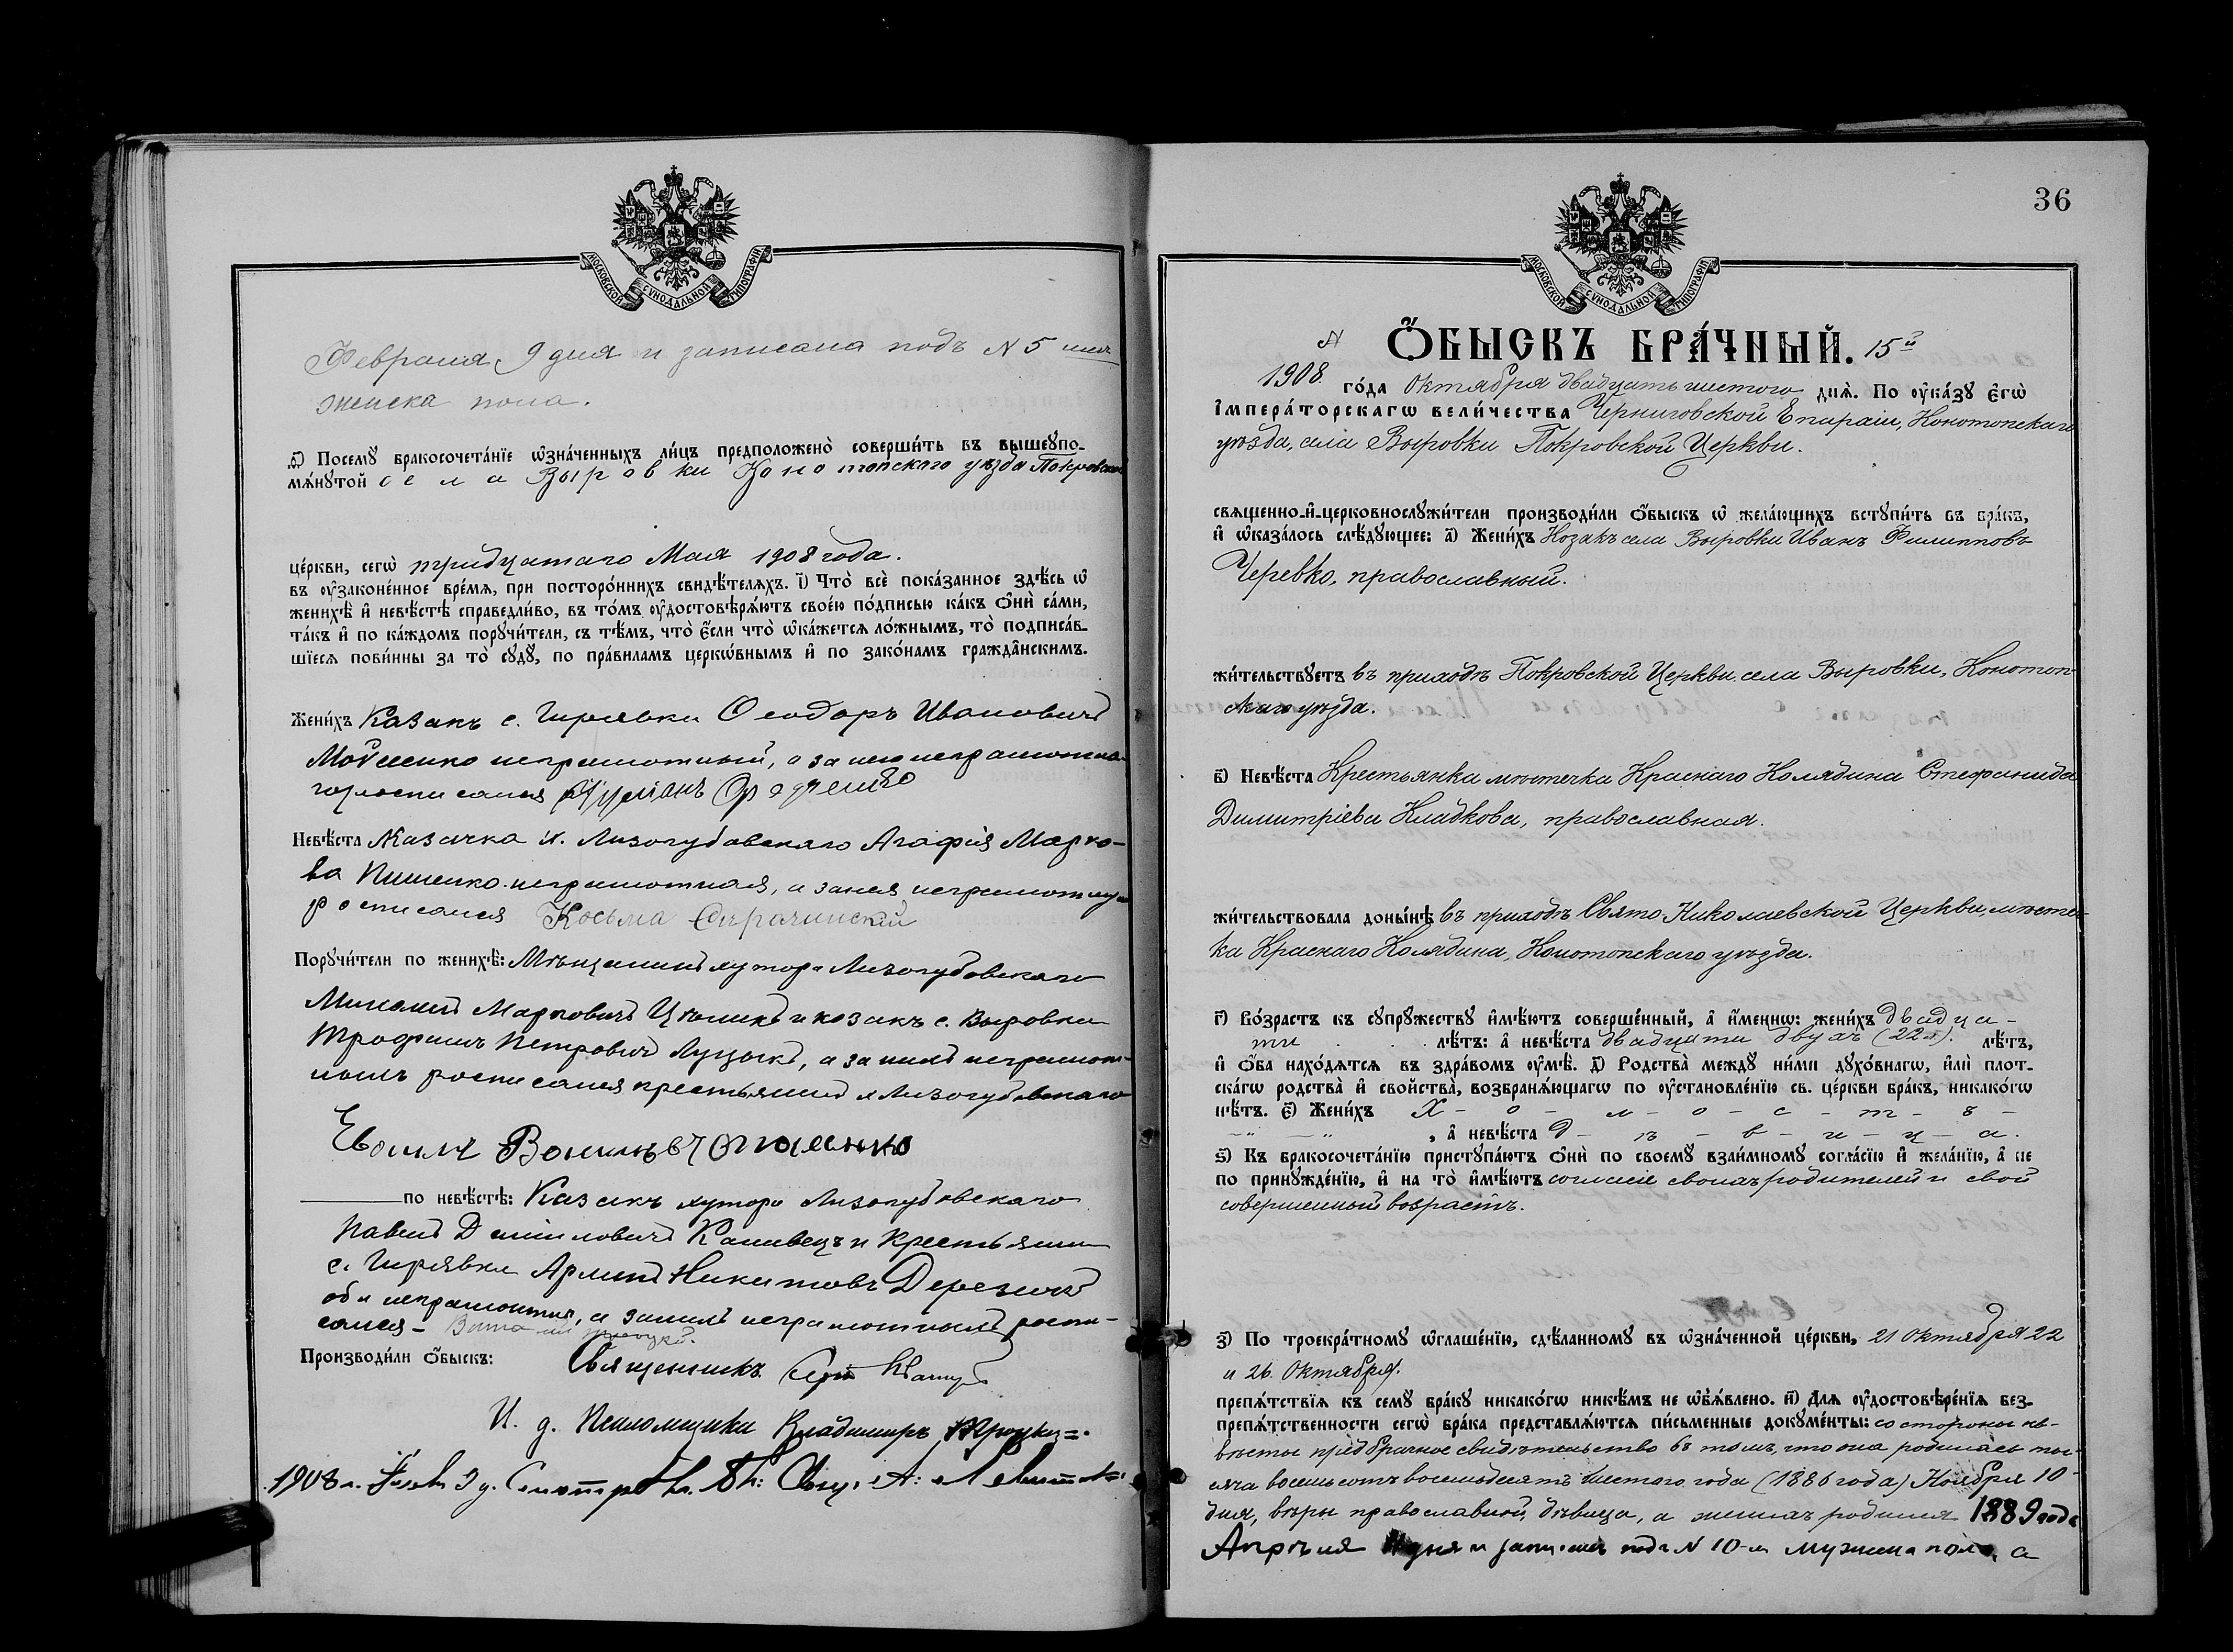 МОСКОВСКОЙ СѴНОДАЛЬНОЙ ТИПОГРАФІИ
Февраля 9 дня и записана подъ N 5
женска пола.
ѳ҃) Посемꙋ̀ бракосочета́нїе ѡ҆зна́ченныхъ ли́цъ предположено̀ соверши́ть въ вышеꙋпо-
мѧ́нꙋтой села Выровки Конотопскаго уѣзда Покровской
це́ркви, сегѡ̀ тридцатаго Мая 1908 года.
въ ᲂу҆законе́нное вре́мѧ, при посторо́ннихъ свидѣ́телѧхъ. і҃) Что̀ всѐ пока́занное здѣ́сь ѡ҆
женихѣ̀ и҆ невѣ́стѣ справедли́во, въ то́мъ ᲂу҆достовѣрѧ́ютъ свое́ю по́дписью ка́къ ѻ҆нѝ са́ми,
та́къ и҆ по ка́ждомъ порꙋчи́тели, съ тѣ́мъ, что̀ є҆́сли что̀ ѡ҆ка́жетсѧ ло́жнымъ, то̀ подписа́в-
шїесѧ пови́нны за то̀ сꙋдꙋ̀, по пра́виламъ церкѡ́внымъ и҆ по зако́намъ гражда̑нскимъ.
Жени́хъ Казакъ с. Гирявки Ѳеодоръ Ивановичъ
Мойсеенко неграмотный, а за него неграмотна-
го росписался
Невѣ́ста Казачка х. Лизогубовскаго Агафія Марко-
ва неграмотная, а за нея неграмотную
росписался Косьма
Порꙋчи́тели по женихѣ̀: Мѣщанинъ хутора Лизогубовскаго
Маркович и козакъ с. Выровки
Трофимъ Петровичъ Луцыкъ, а за нихъ неграмот-
ныхъ росписался крестьянинъ х Лизогубовскаго
по невѣ́стѣ: Казакъ хутора Лизогубовскаго
Павелъ Даниловичъ Каливецъ и Крестьянинъ
с. Гирявки Никитовъ
оба неграмотны, а за нихъ неграмотныхъ роспи-
сался
Производи́ли ѻ҆́быскъ: Священникъ
И. д. Псаломщика Владимиръ Троцкій
1908 г.
36
МОСКОВСКОЙ СѴНОДАЛЬНОЙ ТИПОГРАФІИ
N Ѻ҆́БЫСКЪ БРА́ЧНЫЙ. 15й
1908 го́да Октября двадцать шестого днѧ̀. По ᲂу҆ка́зꙋ є҆гѡ̀
і҆мпера́торскагѡ вели́чества Черниговской Епархіи, Конотопскаго
уѣзда, села Выровки Покровской Церкви.
свѧще́нно-и҆-церковнослꙋжи́тели производи́ли ѻ҆́быскъ ѡ҆ жела́ющихъ встꙋпи́ть въ бра́къ,
и҆ ѡ҆каза́лось слѣ́дꙋющее: а҃) Жени́хъ Козакъ села Выровки Иванъ Филипповъ
Черевко, православный.
жи́тельствꙋетъ въ приходѣ Покровской Церкви села Выровки, Конотоп-
скаго уѣзда.
в҃) Невѣ́ста Крестьянка мѣстечка Краснаго Колядина Стефанида
Димитріева Кладкова, православная.
жи́тельствовала доны́нѣ въ приходѣ Свято-Николаевской Церкви, мѣстеч-
ка Краснаго Колядина, Конотопскаго уѣзда.
г҃) Во́зрастъ къ сꙋпрꙋ́жествꙋ и҆мѣ́ютъ соверше́нный, а҆ и҆́меннѡ: жени́хъ двадца-
ти лѣ́тъ: а҆ невѣ́ста двадцати двухъ (22 л). лѣ́тъ,
и҆ ѻ҆́ба нахо́дѧтсѧ въ здра́вомъ ᲂу҆мѣ̀. д҃) Родства̀ междꙋ̀ ни́ми дꙋхо́внагѡ, и҆лѝ плот-
ска́гѡ родства̀ и҆ сво́йства̀, возбранѧ́ющагѡ по ᲂу҆становле́нїю св. це́ркви бра́къ, никако́гѡ
нѣ́тъ. є҃) Жени́хъ Х - о - л - о - с - т - ъ -
, а҆ невѣ́ста д - ѣ - в - и - ц - а.
ѕ҃) Къ бракосочета́нїю пристꙋпа́ютъ ѻ҆нѝ по своемꙋ̀ взаи́мномꙋ согла́сїю и҆ жела́нїю, а҆ не
по принꙋжде́нїю, и҆ на то̀ и҆мѣ́ютъ согласіе своихъ родителей и свой
совершенный возрастъ.
з҃) По троекра́тномꙋ ѡ҆глаше́нїю, сдѣ́ланномꙋ въ ѡ҆зна́ченной це́ркви, 21 Октября 22
и 26 Октября.
препѧ́тствїѧ къ семꙋ̀ бра́кꙋ никако́гѡ никѣ́мъ не ѡ҆б̾ѧ́влено. и҃) Длѧ ᲂу҆достовѣре́нїѧ без-
препѧ́тственности сегѡ̀ бра́ка представлѧ́ютсѧ пи́сьменные докꙋме́нты: со стороны не-
вѣсты предбрачное свидѣтельство въ томъ, что она родилась ты-
сяча восемьсотъ восемьдесятъ шестого года (1886 года) Ноября 10-
дня, вѣры православной, дѣвица, а женихъ родился 1889 года
Апрѣля дня и записанъ подъ N 10-м мужска пола, а